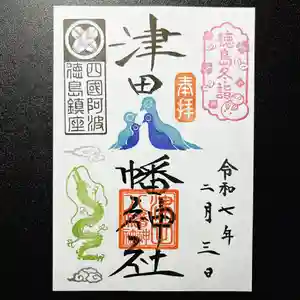 徳島冬詣
奉拝
津田
八幡神社
令和七年
二月三日
四國阿波
徳島鎮座